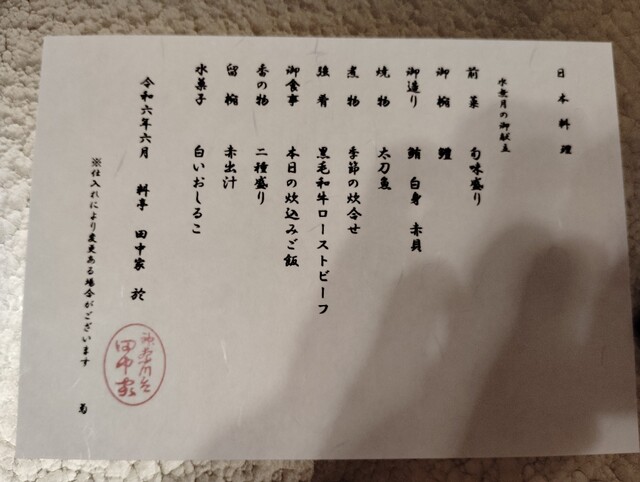 日本料理
水無月の御献立
前菜 旬味盛り
御椀 鱧
御造り 鮪 白身 赤貝
焼物 太刀魚
煮物 季節の炊合せ
強肴 黒毛和牛ローストビーフ
御食事 本日の炊込みご飯
香の物 二種盛り
留椀 赤出汁
水菓子 白いおしるこ
令和六年六月 料亭 田中家 於
※仕入れにより変更ある場合がございます
神奈川台
田中家